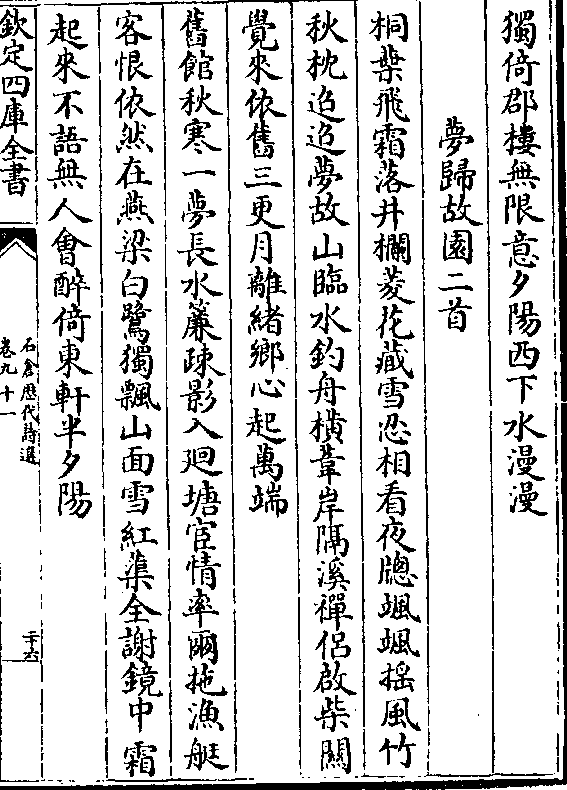 獨倚郡樓無限意夕陽西下水漫漫
夢歸故園二首
桐葉飛霜落井欄菱花藏雪忍相看夜牕颯颯揺風竹
秋枕迢迢夢故山臨水釣舟横葦岸隔溪禪侣啟柴關
覺來依舊三更月離緒鄉心起萬端
舊館秋寒一夢長水簾疎影入廻塘宦情率爾拖漁艇
客恨依然在燕梁白鷺獨飄山面雪紅蕖全謝鏡中霜
起來不語無人會醉倚東軒半夕陽
欽定四庫全書
石倉歴代詩選
卷九十一
二十六